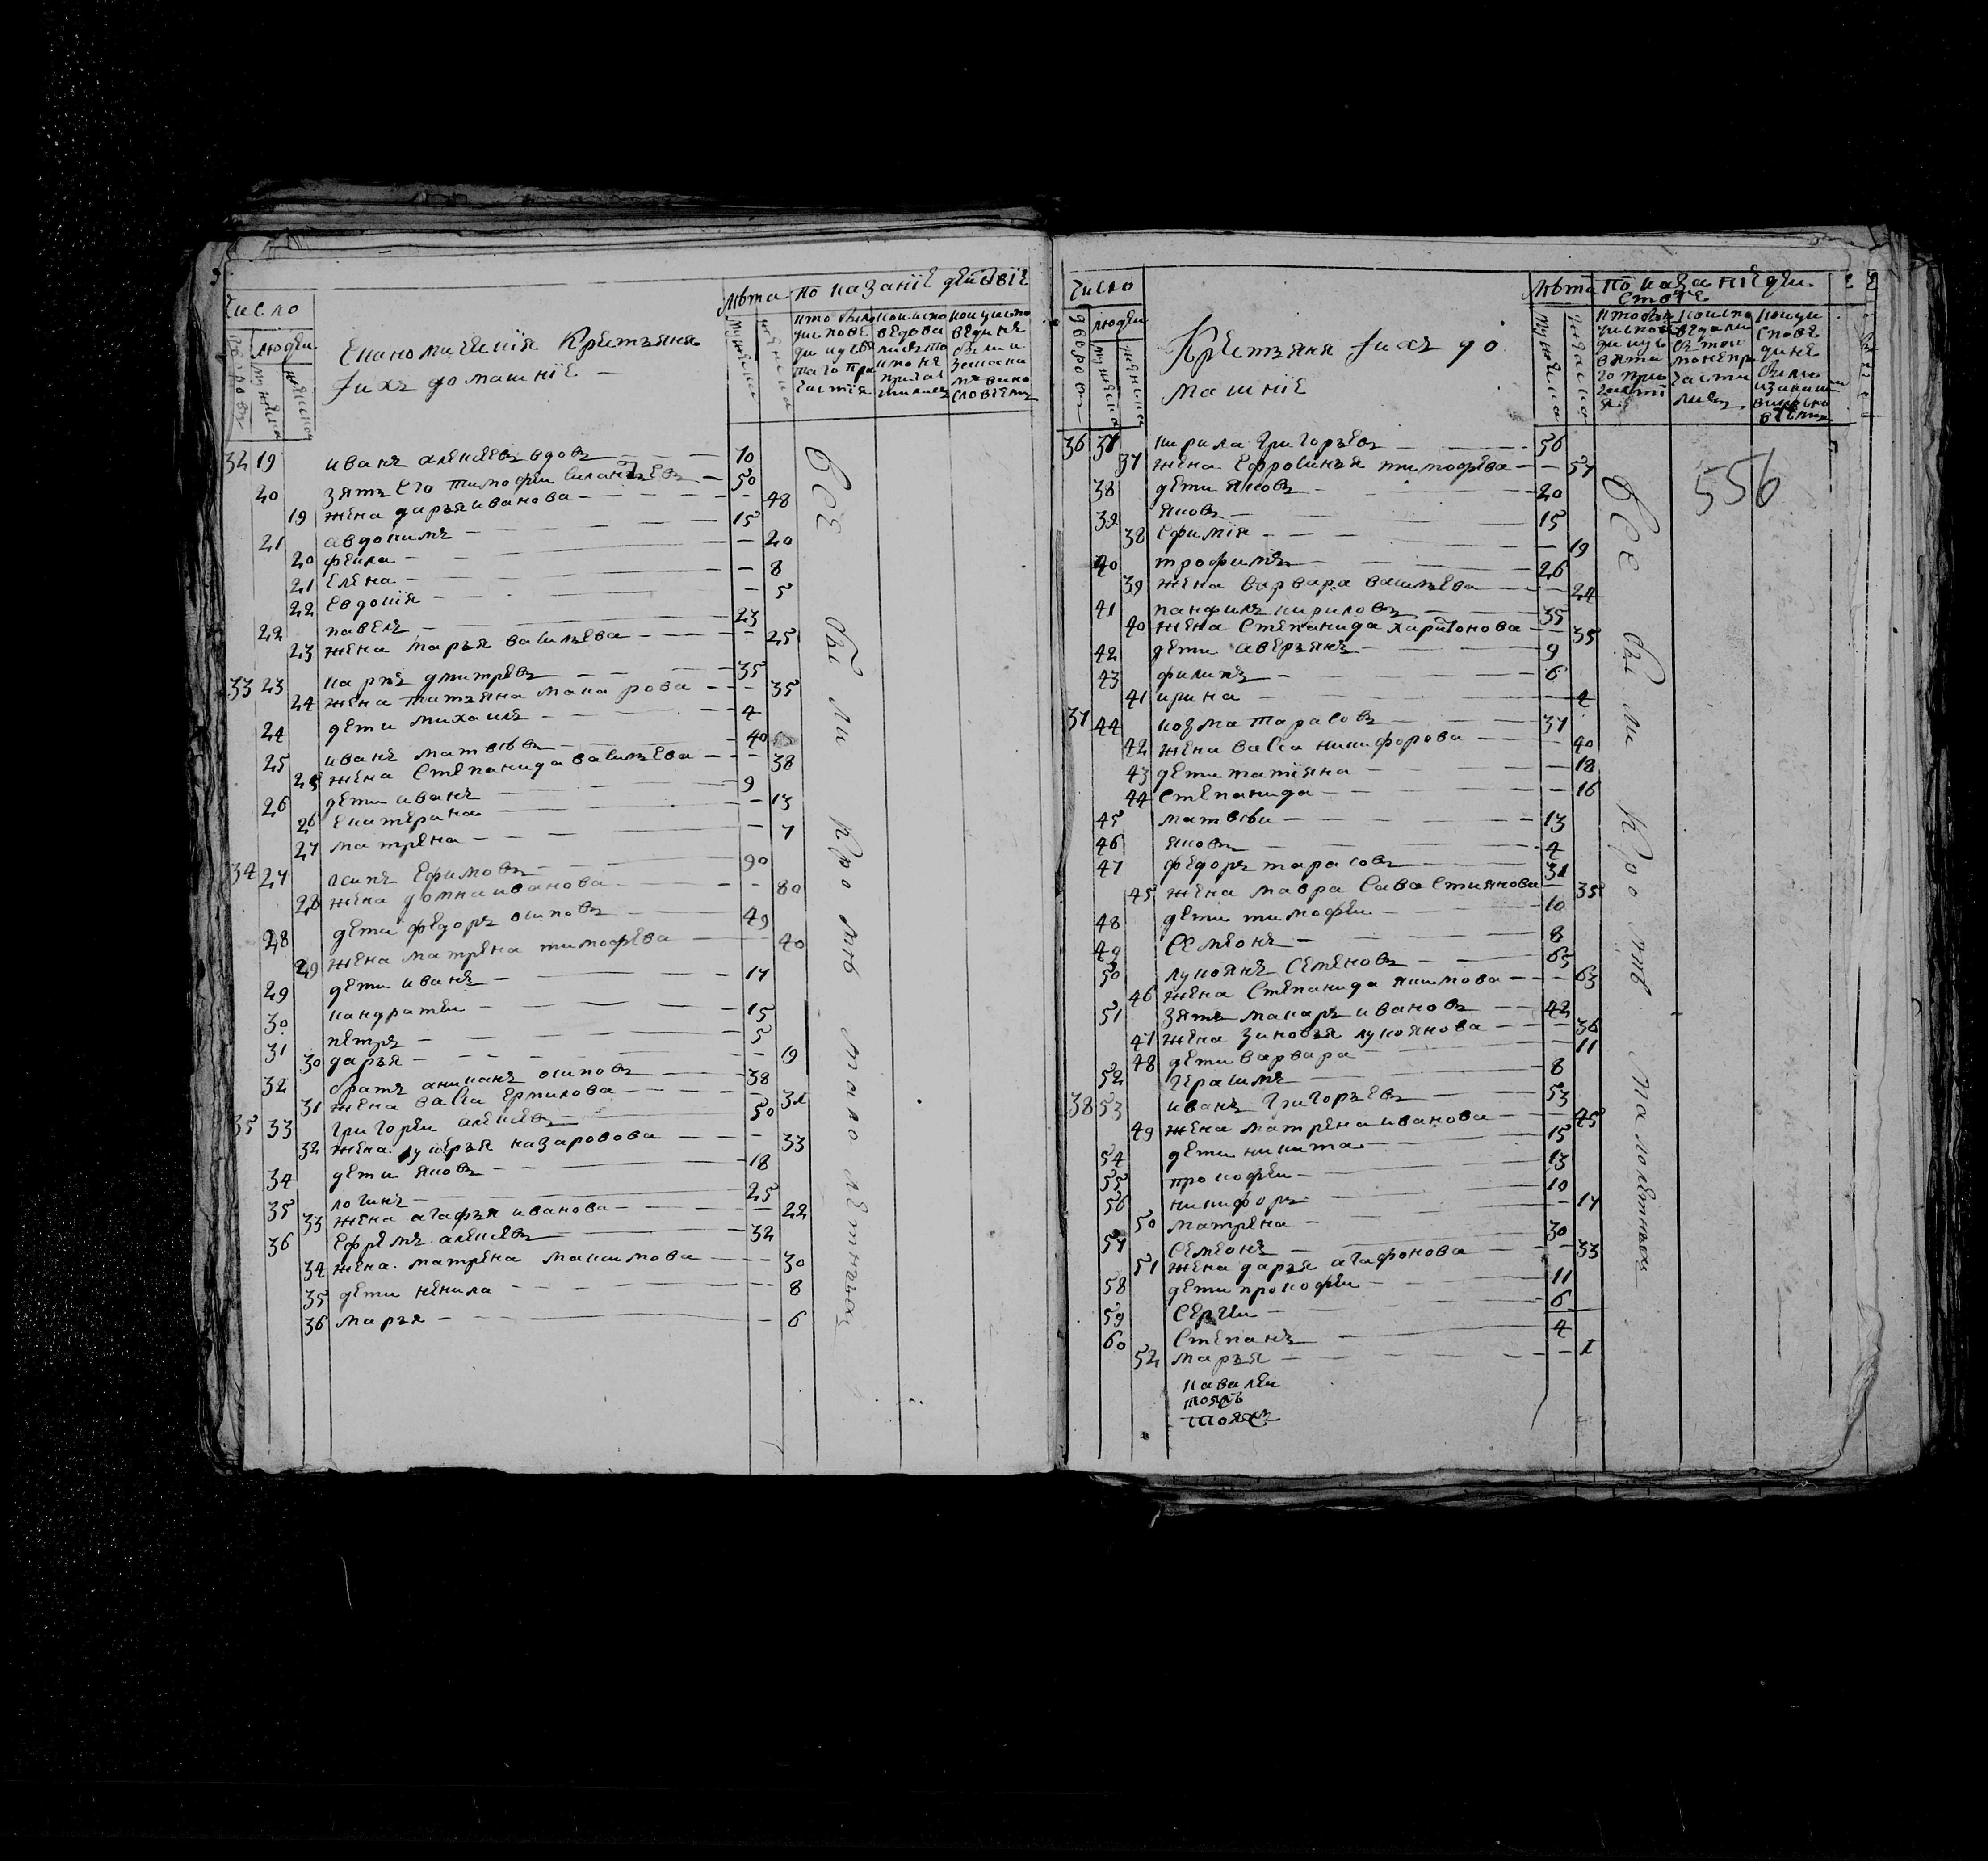 число
лѣта
показаніе действіе
людеи
Економическія крестьяня
и ихъ домашніе
32 19 иванъ алексѣевъ вдовъ 70
20 зять его тимофеи силантьевъ 50
19 жена дарья иванова 48
21 авдокимъ 15
20 фекла 20
21 елена 8
22 евдокія 5
22 павелъ 23
23 жена марья васильева 25
33 23 карпъ дмитревъ 35
24 жена татьяна макарова 35
24 дети михаила 4
25 иванъ матвѣевъ 40
25 жена степанида васильева 38
26 дети иванъ 9
26 екатерина 13
27 матрена 7
34 27 осипъ ефимовъ 90
28 жена домна иванова 80
28 дети федоръ осиповъ 49
29 жена матрена тимофеева 40
29 дети иванъ 17
30 кандратеи 15
31 петръ 5
30 дарья 19
32 братъ аниканъ осиповъ 38
31 жена васса ермилова 31
35 33 григореи алексѣевъ 50
32 жена лукерья назаровова 33
34 дети яковъ 18
35 логинъ 25
33 жена агафья иванова 22
36 ефремъ алексѣевъ 32
34 жена матрена макимова 30
35 дети ненила 8
36 марья 6
все были кромѣ малолетныхъ
число
лѣта
показаніе деи
ствіе
людеи
дворовъ
крестьяня и ихъ до
машніе
556
36 37 кирила григорьевъ 56
37 жена ефросинья тимофеева 57
38 дети яковъ 20
39 яковъ 15
38 ефимія 19
40 трофимъ 26
39 жена варвара васильева 24
41 панфилъ кириловъ 35
40 жена степанида харитонова 35
42 дети аверьянъ 9
43 филипъ 6
41 ирина 4
37 44 козма тарасовъ 37
42 жена васса никифорова 40
43 дети татіяна 18
44 степанида 16
45 матвѣи 13
46 яковъ 4
47 федоръ тарасовъ 31
45 жена мавра савастиянова 35
48 дети тимофеи 10
49 семионъ 8
50 лукоянъ семеновъ 65
46 жена степанида якимова 63
51 зять макаръ ивановъ 42
47 жена зиновья лукоянова 36
48 дети варвара 11
52 герасимъ 8
38 53 иванъ григорьевъ 53
49 жена матрена иванова 45
54 дети никита 15
55 прокофеи 13
56 никифоръ 10
50 матрена 17
57 семионъ 30
51 жена дарья агафонова 33
58 дети прокофеи 11
59 сергеи 6
60 степанъ 4
52 марья 1
все были кромѣ малолетныхъ